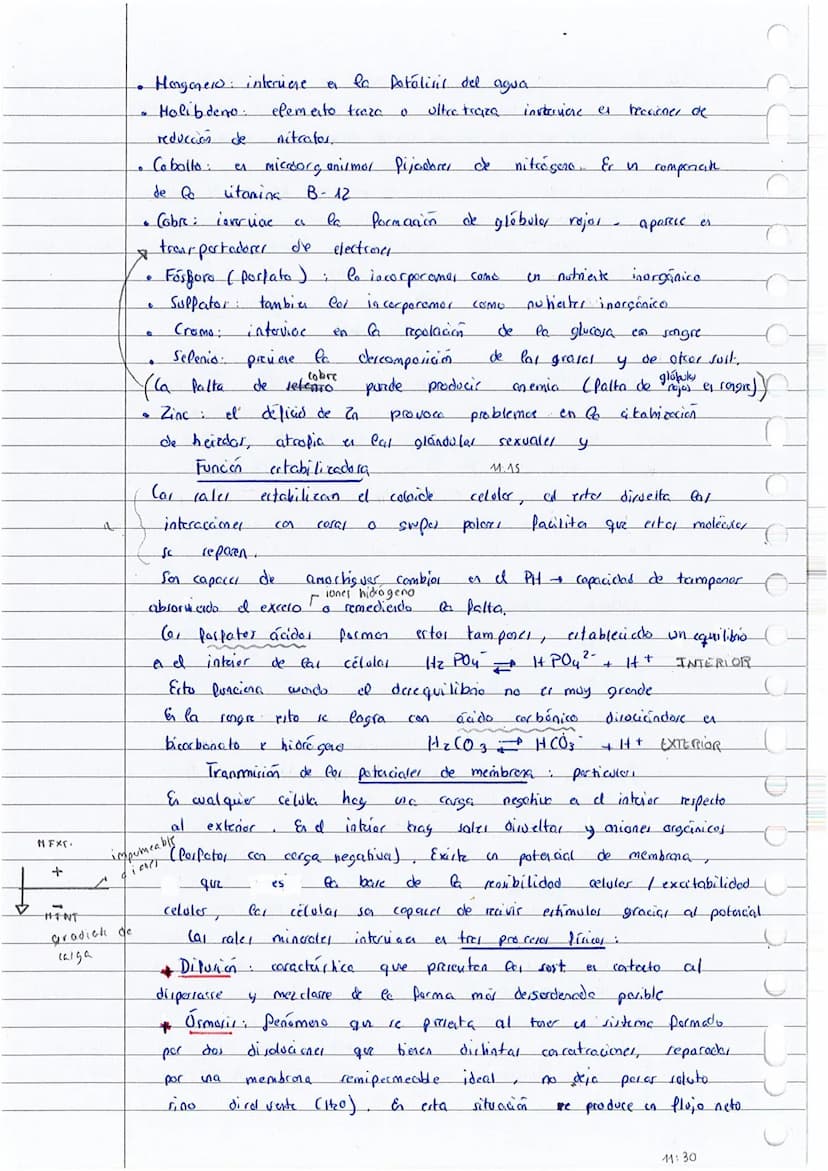 • Manganeso: interviene en la fotólisis del agua
• Molibdeno: elemento traza o ultratraza interviene en reacciones de
reducción de nitratos.
• Cobalto: en microorganismos fijadores de nitrógeno. Es un componente
de la vitamina B-12
• Cobre: interviene en la formación de glóbulos rojos - aparece en
transportadores de electrones
• Fósforo (fosfato): lo incorporamos como un nutriente inorgánico
• Sulfatos: también los incorporamos como nutrientes inorgánicos
• Cromo: interviene en la regulación de la glucosa en sangre
• Selenio: previene la descomposición de las grasas y de otras sust.
(La falta de selenio cobre puede producir anemia (falta de glóbulos rojos en sangre))
• Zinc: el déficid de Zn provoca problemas en la citabización
de heirdas, atrofia en las glándulas sexuales y
Función estabilizadora 11.15
Las sales estabilizan el coloide celular, al estar disuelta las
interacciones con cosas o super polares facilita que estas moléculas
se separen.
Son capaces de amortiguar cambios en el PH → capacidad de tamponar
absorviendo el exceso iones hidrógeno o remediendo la falta.
Los fosfatos ácidos forman estos tampones, estableciendo un equilibrio
en el interior de las células H2 PO4⁻ ⇌ H PO4²⁻ + H+ INTERIOR
Esto funciona cuando el desequilibrio no es muy grande
En la sangre esto se logra con ácido carbónico disociándose en
bicarbonato e hidrógeno H2CO3 ⇌ HCO3⁻ + H+ EXTERIOR
Tranmisión de los potenciales de membrana: particulas
En cualquier célula hay una carga negativa en el interior respecto
al exterior. En el interior hay sales disueltas y aniones orgánicos
(fosfatos con carga negativa). Existe un potencial de membrana,
que es la base de la sensibilidad celular / excitabilidad
celular, las células son capaces de recivir estímulos gracias al potencial
M EXT.
+
impermeable
-
M INT
gradiente de
carga
Las sales minerales intervienen en tres procesos físicos:
+ Difusión: característica que presentan las sust en contacto al
dispersarse y mezclarse de la forma más desordenada posible
+ Ósmosis: fenómeno que se presenta al tener un sistema formado
por dos disoluciones que tienen distintas concentraciones, separadas
por una membrana semipermeable ideal, no deja pasar soluto
sino disolvente (H2O). En esta situación se produce un flujo neto
11:30